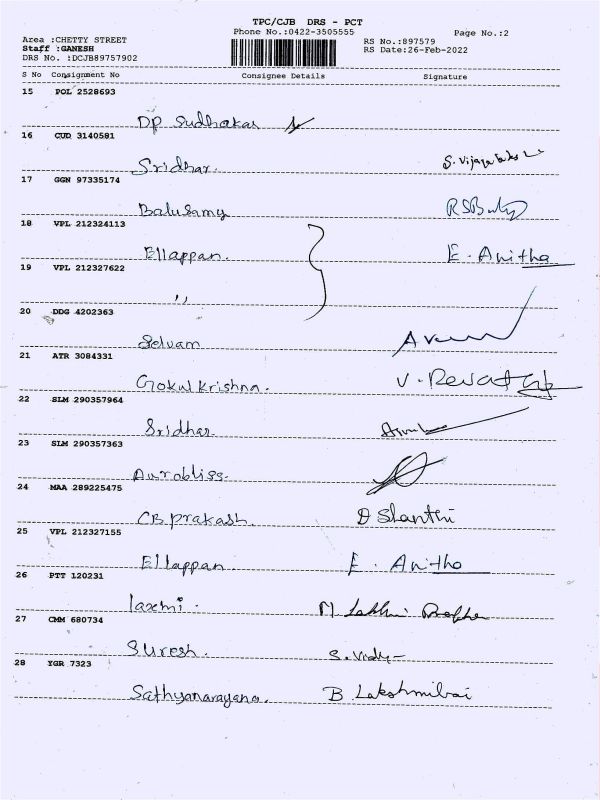 TPC/CJB DRS - PCT
Phone No.:0422-3505555 Page No.:2
Area :CHETTY STREET
RS No.:897579
Staff :GANESH
RS Date:26-Feb-2022
DRS No. :DCJB89757902
S No Consignment No Consignee Details Signature
15 POL 2528693
DP Sudhakar
16 CUD 3140581
Sridhar. S. Vijaya
17 GGN 97335174
Balusamy
18 VPL 212324113
Ellappan. E. Anitha
19 VPL 212327622
"
20 DDG 4202363
Selvam
21 ATR 3084331
Gokul Krishna. V. Revathy
22 SLM 290357964
Sridhar
23 SLM 290357363
Aurobliss.
24 MAA 289225475
CB Prakash. D Shanthi
25 VPL 212327155
Ellappan. E. Anitha
26 PTT 120231
laxmi. M
27 CMM 680734
Suresh. S. Vidy
28 YGR 7323
Sathyanarayana. B Lakshmibai